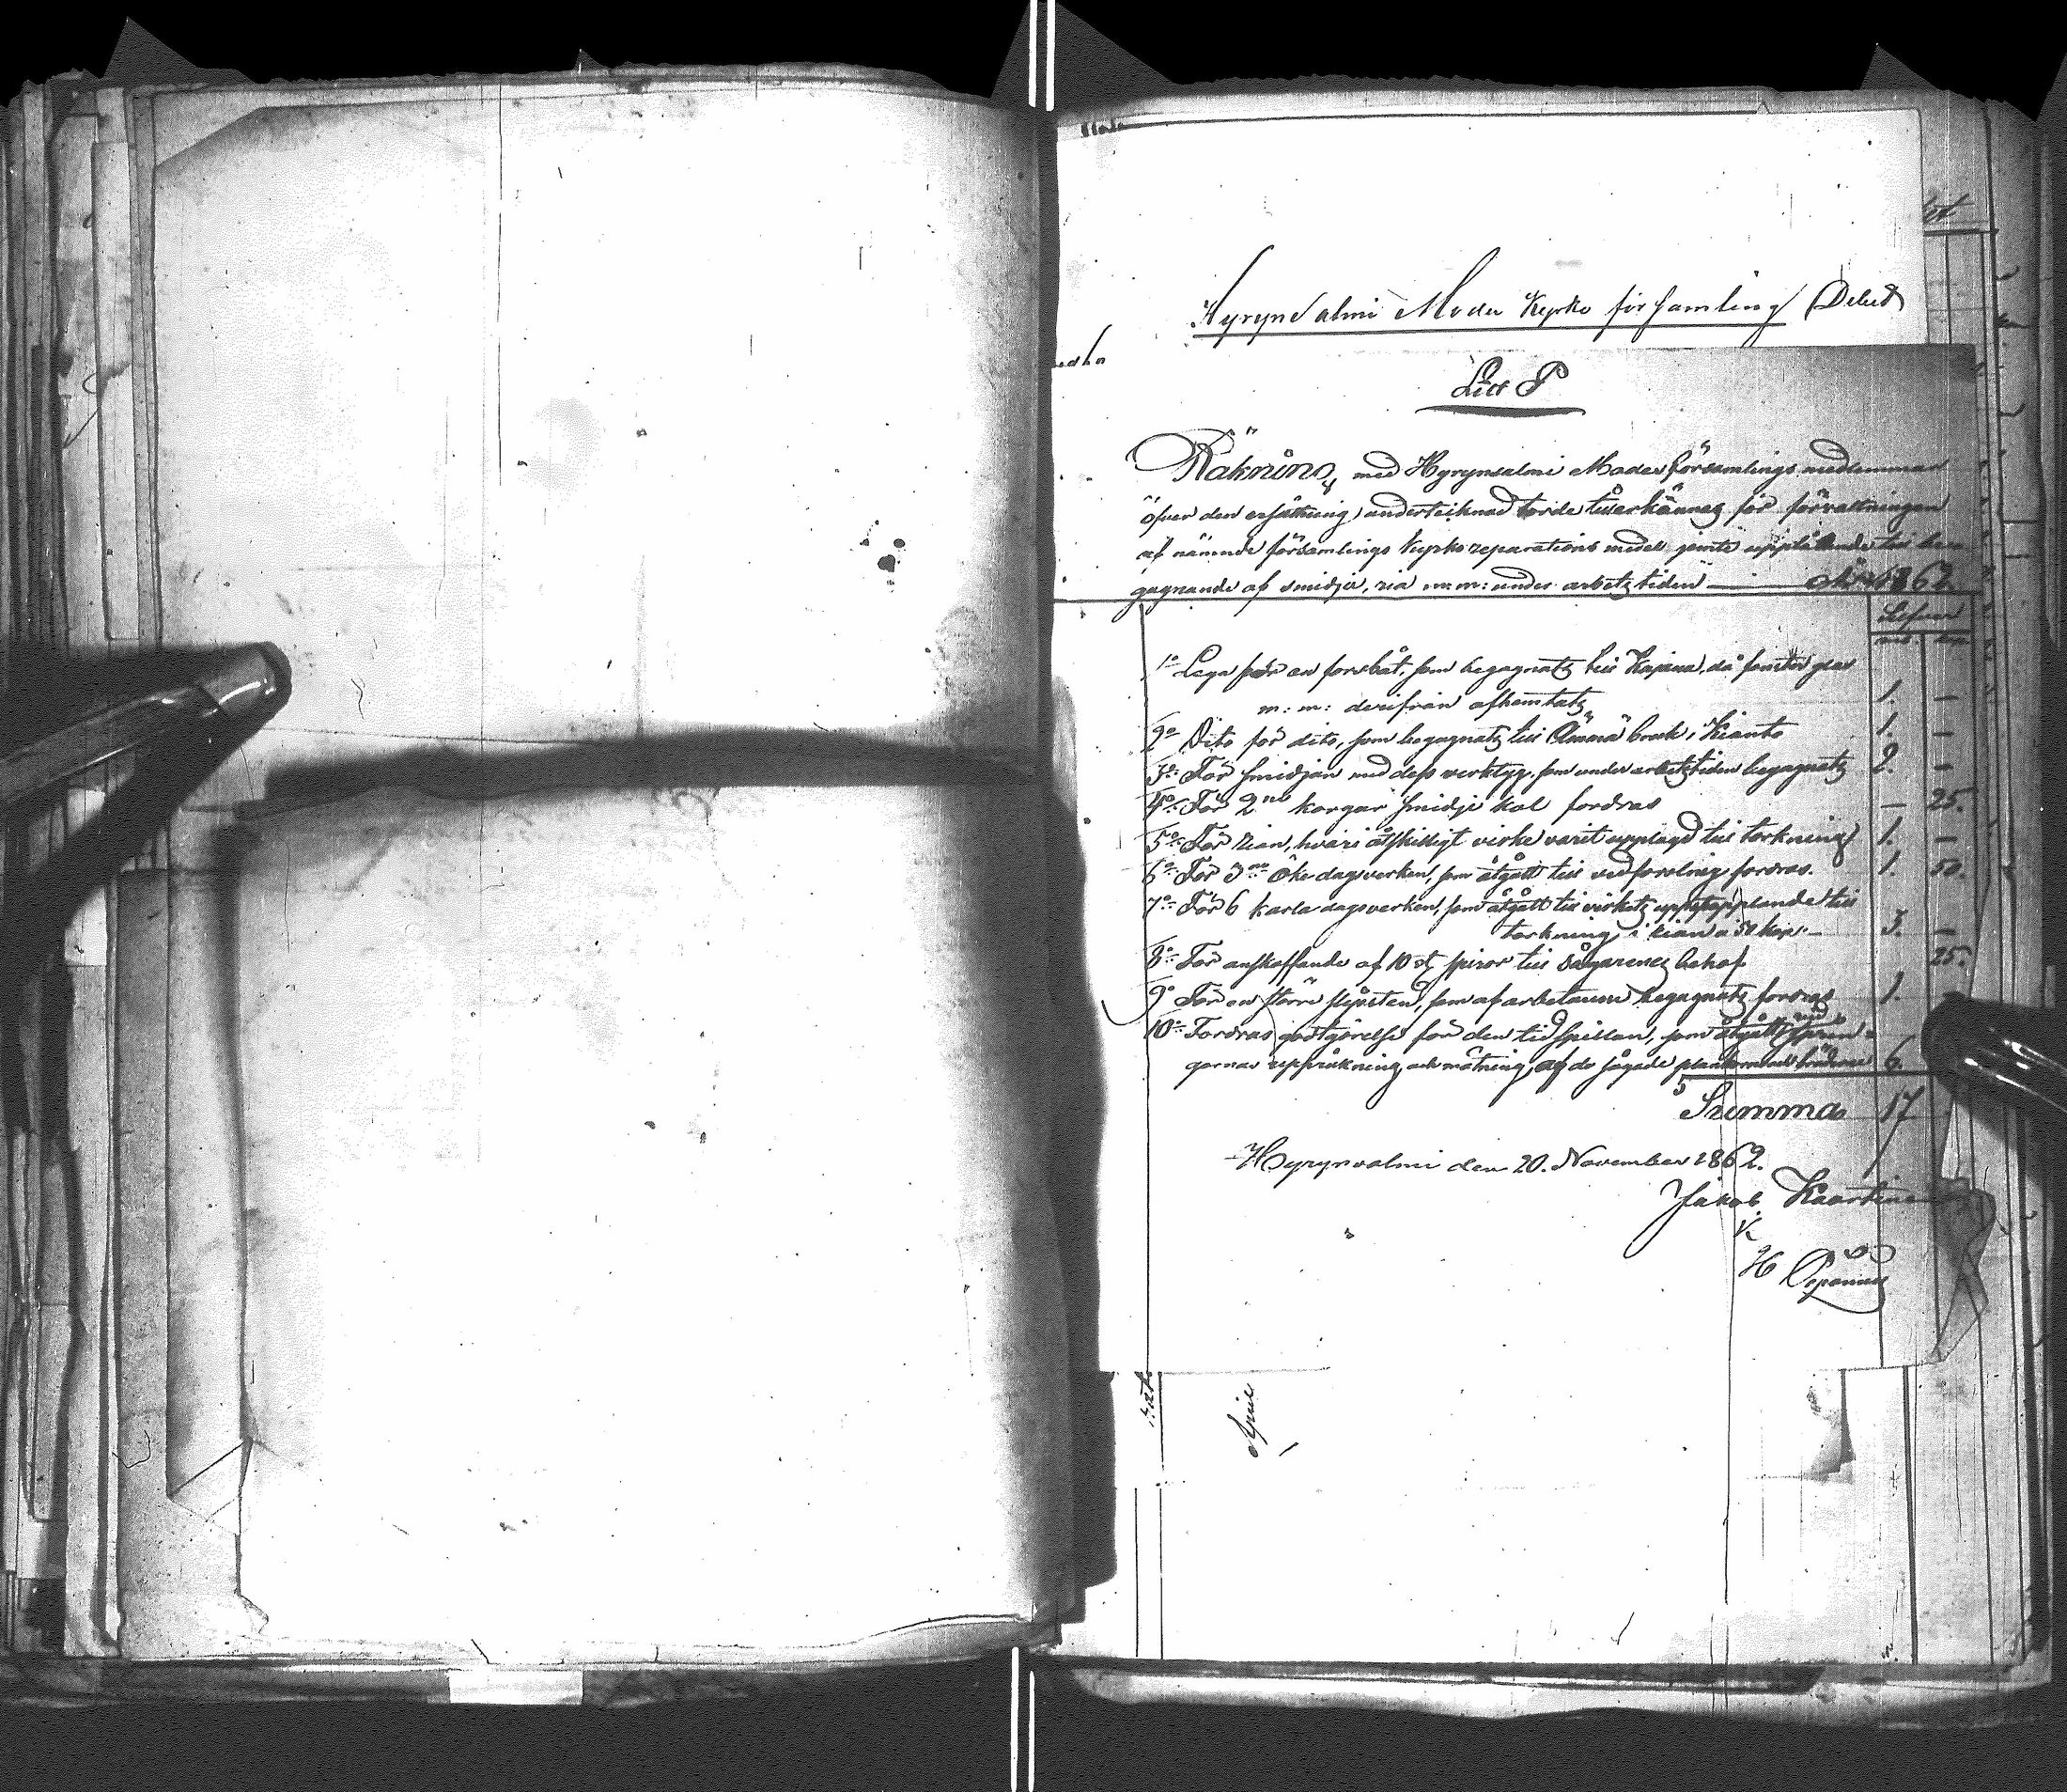 Hyrynsalmi Moder Kyrko församling Debet
Litt P
Räkning, med Hyrynsalmi Moderförsamlings medlemmar
öfver den ersättning, undertecknad torde tillerkännas för förvaltningen
af nämnde församlings Kyrko reparations medel jemte upplåtande till be-
gagnande af smidja, ria m: m: under arbetstiden 1862.
1o Lega för en forsbåt, som begagnats till Kajana, då fönster glas
m: m: derifrån afhemtats 1. —
2o Dito för dito, som begagnats till Ämmä bruk i Kianto 1. —
3o För smidjan med dess verktyg, som under arbetstiden begagnats 2. —
4o För 2ne korgar smidje kol fordras — 25.
5o För rian, hvari åtskilligt virke varit upplagd till torkning 1. —
6o För 3ne öke dagsverken, som åtgått till vedforsling fordras. 1. 50.
7o För 6 karla dagsverken, som åtgått till virkets uppstapplande till
torkning i rian a 50 kop. — 3. —
8o För anskaffande af 10 st spiror till sågarenes behof 25.
9o För en större slipsten, som af arbetarne begagnats fordras 1.
10o Fordras godtgörelse för den tidspillan, som åtgått vid
uppräkning och mätning af de sågade 6.
Summa 17
Hyrynsalmi den 20. November 1862.
Jakob
H
April